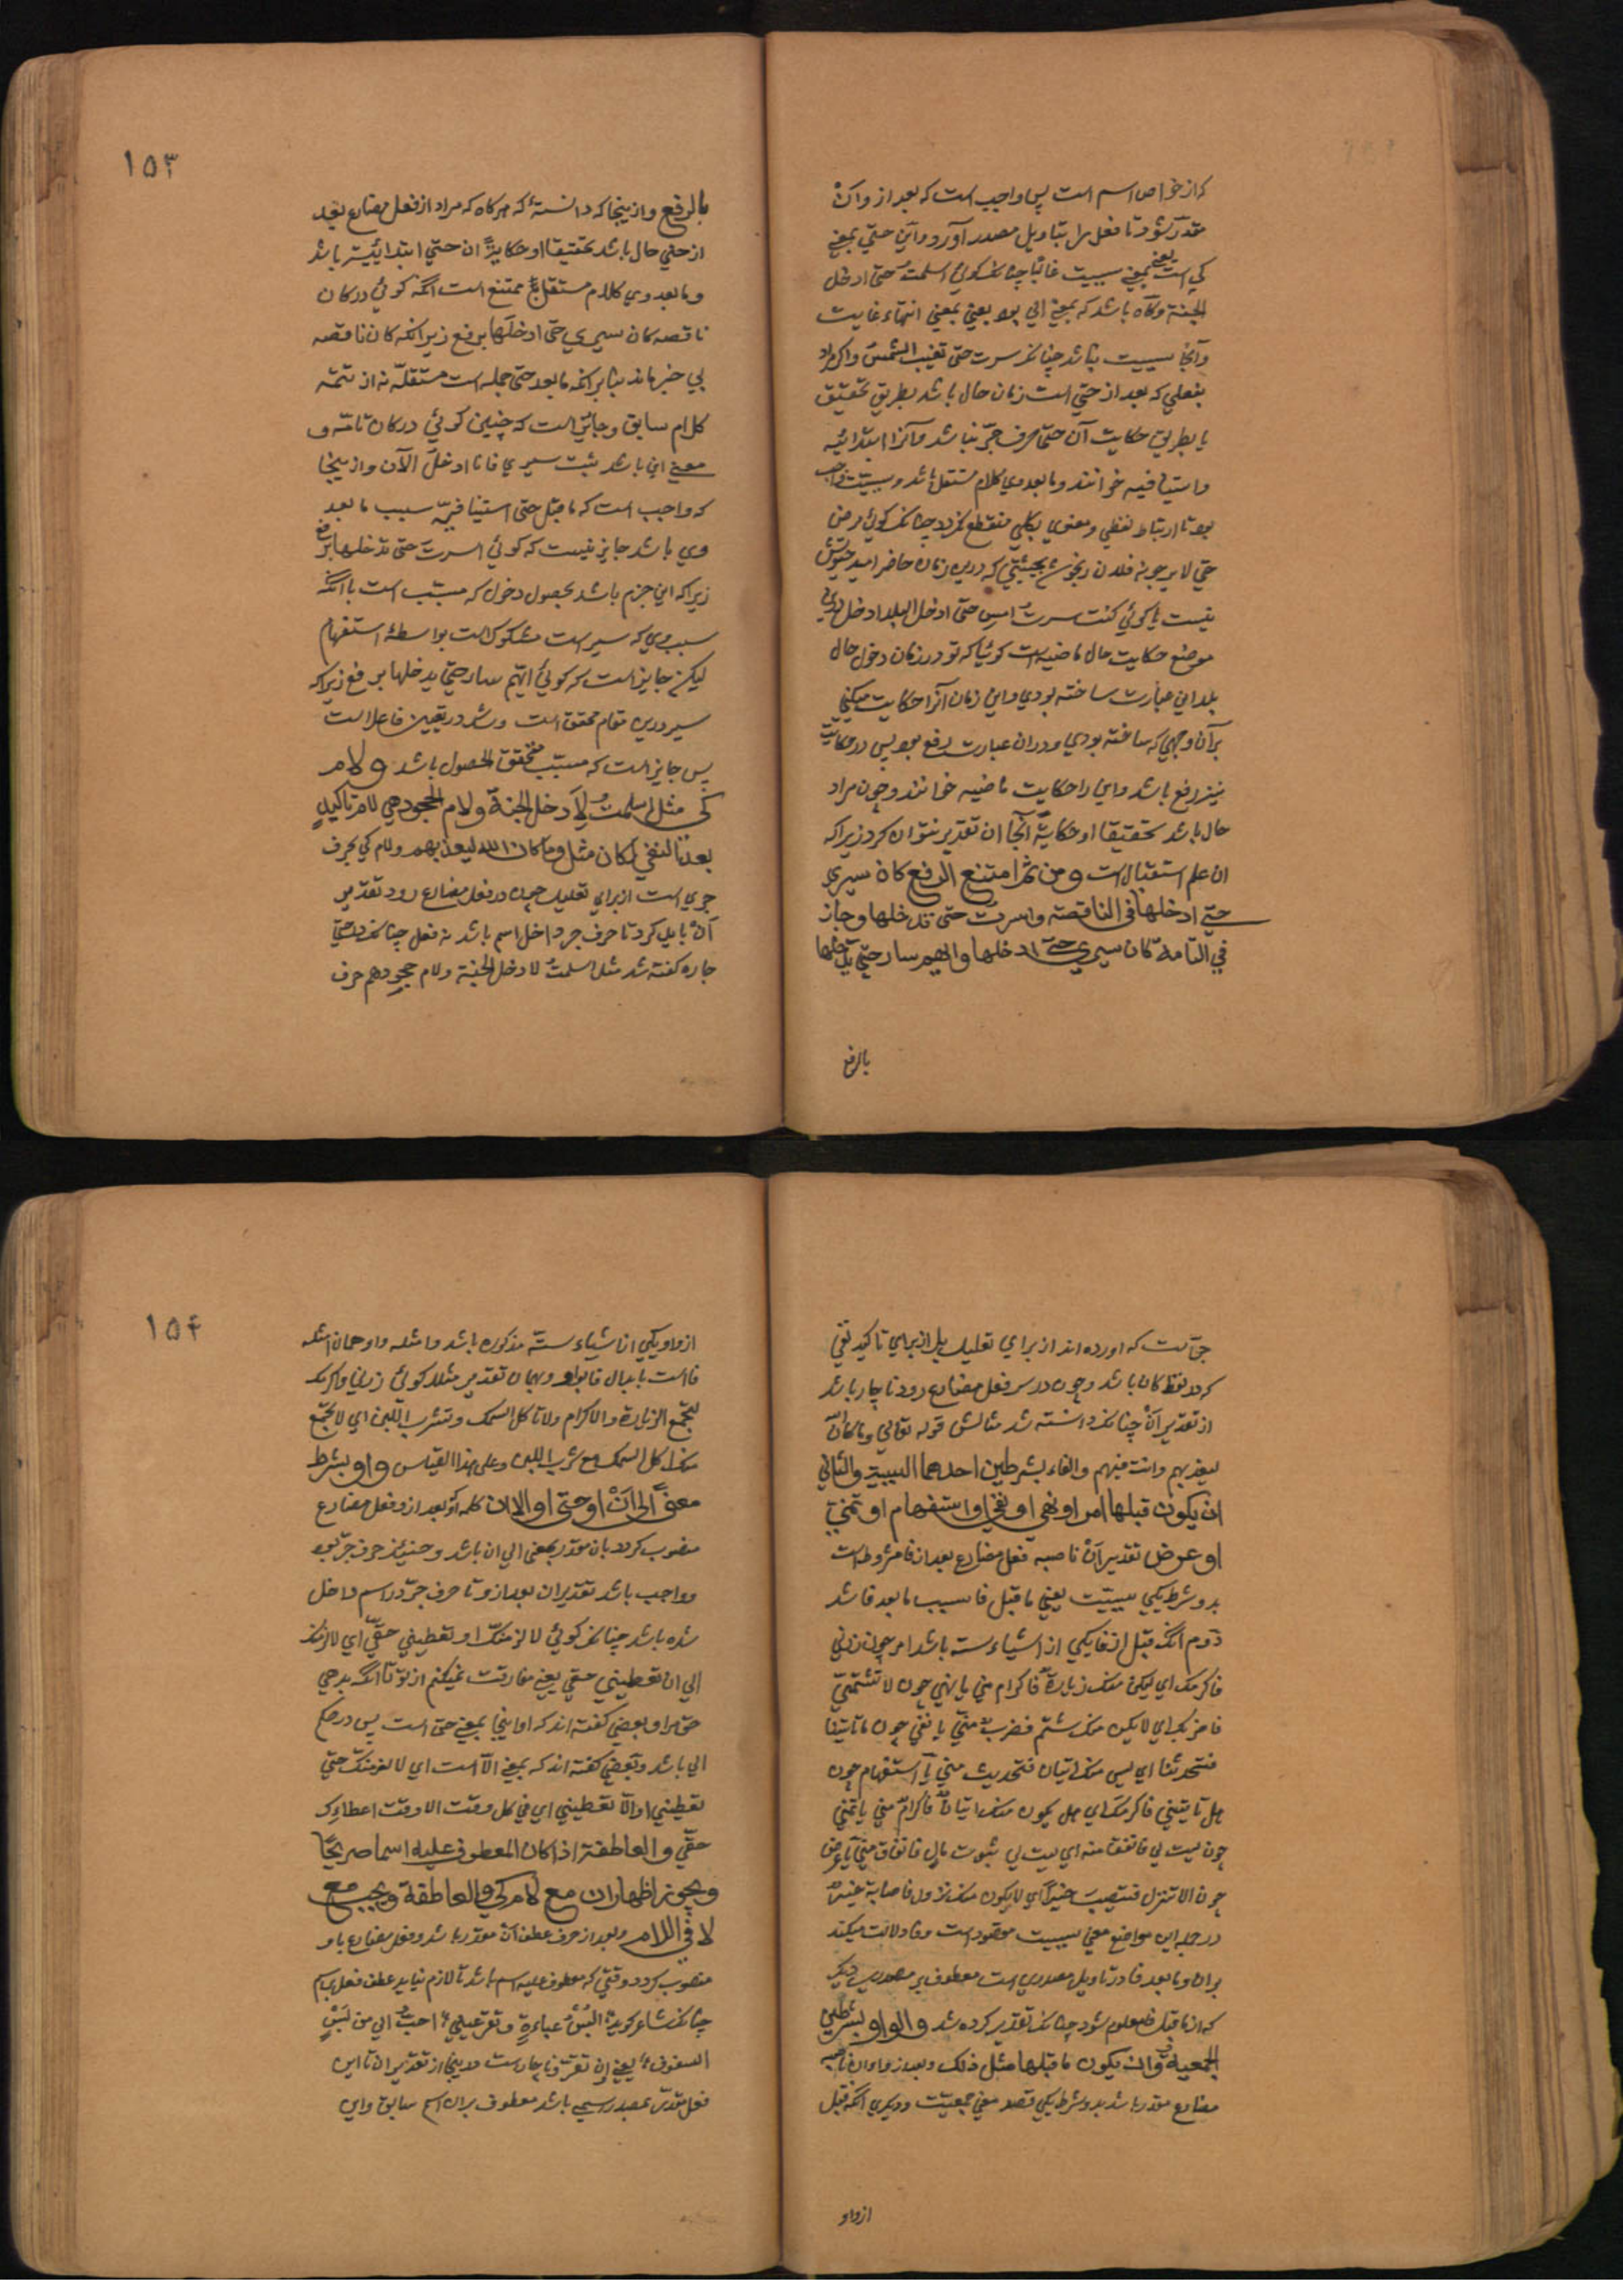 که از خواص اسم است پس واجب است که بعد از و ان
مقدر شود تا فعل را بتاویل مصدر آورد و این حتی بمعنی
کی است یعنی بمعنی سببیت غالبا چنانکه کوئی اسلمت حتی ادخل
الجنة و کاه باشد که بمعنی الی بود یعنی بمعنی انتهاء غایت
و آنجا سببیت نباشد چنانکه سرت حتی تغیب الشمس و اکر مراد
بفعلی که بعد از حتی است زمان حال باشد بطریق تحقیق
یا بطریق حکایت آن حتی حرف جر نباشد و آنرا ابتدائیه
و استینافیه خوانند و ما بعد وی کلام مستقل باشد و سببیت واجب
بود تا ارتباط لفظی و معنوی بکلی منقطع نکردد چنانکه کوئی مرض
حتی لا یرجونه فلان رنجور بحیثیتی که درین زمان حاضر امید
نیست یا کوئی کنت سرت امس حتی ادخل البلد ادخل درین
موضع حکایت حال ماضیه است کوئیا که تو در زمان دخول حال
بلد این عبارت ساخته بودی و این زمان آنرا حکایت میکنی
بر آن وجهی که ساخته بودی و در ان عبارت رفع بود پس در حکایت
نیز رفع باشد و این را حکایت ماضیه خوانند و چون مراد
حال باشد تحقیقا او حکایة آنجا ان تقدیر نتوان کرد زیرا که
ان علم استقبال است و من ثم امتنع الرفع کان سیری
حتی ادخلها فی الناقصة و اسرت حتی تدخلها و جاز
فی التامة کان سیری حتی ادخلها و ایهم سار حتی یدخلها
بالرفع
۱۵۳
بالرفع و از ینجا که دانستۀ که هرکاه که مراد از فعل مضارع بعد
از حتی حال باشد تحقیقا او حکایة ان حتی ابتدائیه باشد
و ما بعد وی کلام مستقل ممتنع است انکه کوئی در کان
ناقصه کان سیری حتی ادخلها برفع زیرا که کان ناقصه
بی خبر ماند بنابر انکه ما بعد حتی جمله است مستقله نه از تتمه
کلام سابق و جایز است که چنین کوئی در کان تامه و
معنی این باشد ثبت سیری فانا ادخل الآن و از ینجا
که واجب است که ما قبل حتی استینافیه سبب ما بعد
وی باشد جایز نیست که کوئی اسرت حتی تدخلها برفع
زیرا که این جزم باشد بحصول دخول که مسبب است با انکه
سبب وی که سیر است مشکوک است بواسطۀ استفهام
لیکن جایز است که کوئی ایهم سار حتی یدخلها برفع زیرا که
سیر درین مقام محقق است و شد در تعیین فاعل است
پس جایز است که مسبب متحقق الحصول باشد و لام
کی مثل اسلمت لادخل الجنة و لام الجحود هی لام تاکید
بعد النفی لکان مثل و ما کان الله لیعذبهم و لام کی حرف
جری است از برای تعلیل چون در فعل مضارع رود تقدیر
ان باید کرد تا حرف جر داخل اسم باشد نه فعل چنانکه در حتی
جاره کفته شد مثل اسلمت لادخل الجنة و لام جحود هم حرف
جر است که اورده اند از برای تعلیل بل از برای تاکید نفی
کرد لفظ کان باشد و چون در سر فعل مضارع رود ناچار باشد
از تقدیر ان چنانکه دانسته شد مثالش قوله تعالی و ما کان الله
لیعذبهم و انت فیهم و الفاء بشرطین احدهما السببیة و الثانی
ان یکون قبلها امر او نهی او نفی او استفهام او تمنی
او عرض تقدیر ان ناصبه فعل مضارع بعد از فا مشروط است
بدو شرط یکی سببیت یعنی ما قبل فا سبب ما بعد فا شد
دوم انکه قبل از فا یکی از اشیاء سته باشد امر چون زرنی
فاکرمک ای لیکن منک زیارة فاکرام منی یا نهی چون لا تشتمنی
فاضربک ای لا یکن منک شتم فضرب منی یا نفی چون ما تاتینا
فتحدثنا ای لیس منک اتیان فتحدیث منی یا استفهام چون
هل تاتینی فاکرمک ای هل یکون منک اتیان فاکرام منی یا تمنی
چون لیت لی فانفق منه ای لیت لی ثبوت مال فانفاق منی یا عرض
چون الا تنزل فتصیب خیرا ای لا یکون منک نزول فاصابة خیر
در جمله این مواضع معنی سببیت مقصود است و فا دلالت میکند
بر ان و ما بعد فا در تاویل مصدری است معطوف بر مصدری دیکر
که از ما قبل فا معلوم شود چنانکه تقدیر کرده شد و الواو بشرطین
الجمعیة و ان یکون ما قبلها مثل ذلک و بعد از واو ان ناصبه
مضارع مقدر باشد بدو شرط یکی قصد معنی جمعیت و دیکری انکه قبل
از واو
۱۵۴
از واو یکی از اشیاء سته مذکوره باشد و امثله واو همان امثله
فا است بابدال فا بواو و بهمان تقدیر مثلا کوئی زرنی و اکرمک
لتجتمع الزیارة و الاکرام و لا تاکل السمک و تشرب اللبن ای لا تجتمع
منک اکل السمک مع شرب اللبن و علی هذا القیاس و او بشرط
معنی الی ان او حتی او الا ان کلمه او بعد از و فعل مضارع
منصوب کردد بان مقدر بمعنی الی ان باشد و حینئذ حرف جر بود
و واجب باشد تقدیر ان بعد از و تا حرف جر در اسم داخل
شده باشد چنانکه کوئی لالزمنک او تعطینی حقی ای لالزمنک
الی ان تعطینی حقی یعنی مفارقت نمیکنم از تو تا انکه بدهی
حق مرا و بعضی کفته اند که او اینجا بمعنی حتی است پس در حکم
الی باشد و بعضی کفته اند که بمعنی الا است ای لالزمنک حتی
تعطینی او الا تعطینی ای فی کل وقت الا وقت اعطائک
حقی و العاطفة اذا کان المعطوف علیه اسما صریحا
و یجوز اظهار ان مع لام کی و العاطفة و یجب مع
لا فی اللام و بعد از حرف عطف ان مقدر باشد و فعل مضارع باو
منصوب کردد وقتی که معطوف علیه اسم باشد تا لازم نیاید عطف فعل باسم
چنانکه شاعر کوید للبس عباءة و تقر عینی احب الی من لبس
الشفوف یعنی ان تقر و ناچار است درینجا از تقدیر ان تا این
فعل مقدر بمصدر سبحی باشد معطوف بران اسم سابق و این